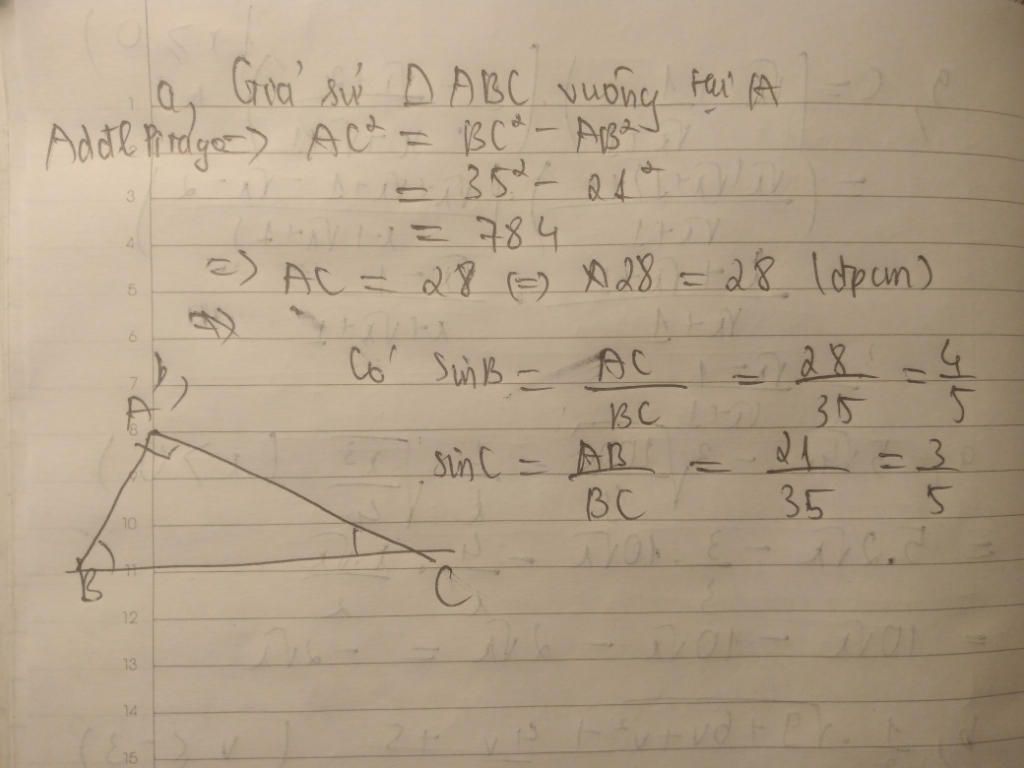 a, Giả sử Δ ABC vuông tại A
Adđl Pitago => AC² = BC² - AB²
= 35² - 21²
= 784
=> AC = 28 (=) 28 = 28 (đpcm)
b, Có sinB = AC/BC = 28/35 = 4/5
sinC = AB/BC = 21/35 = 3/5
A
B
C
1
3
4
5
6
7
8
9
10
11
12
13
14
15